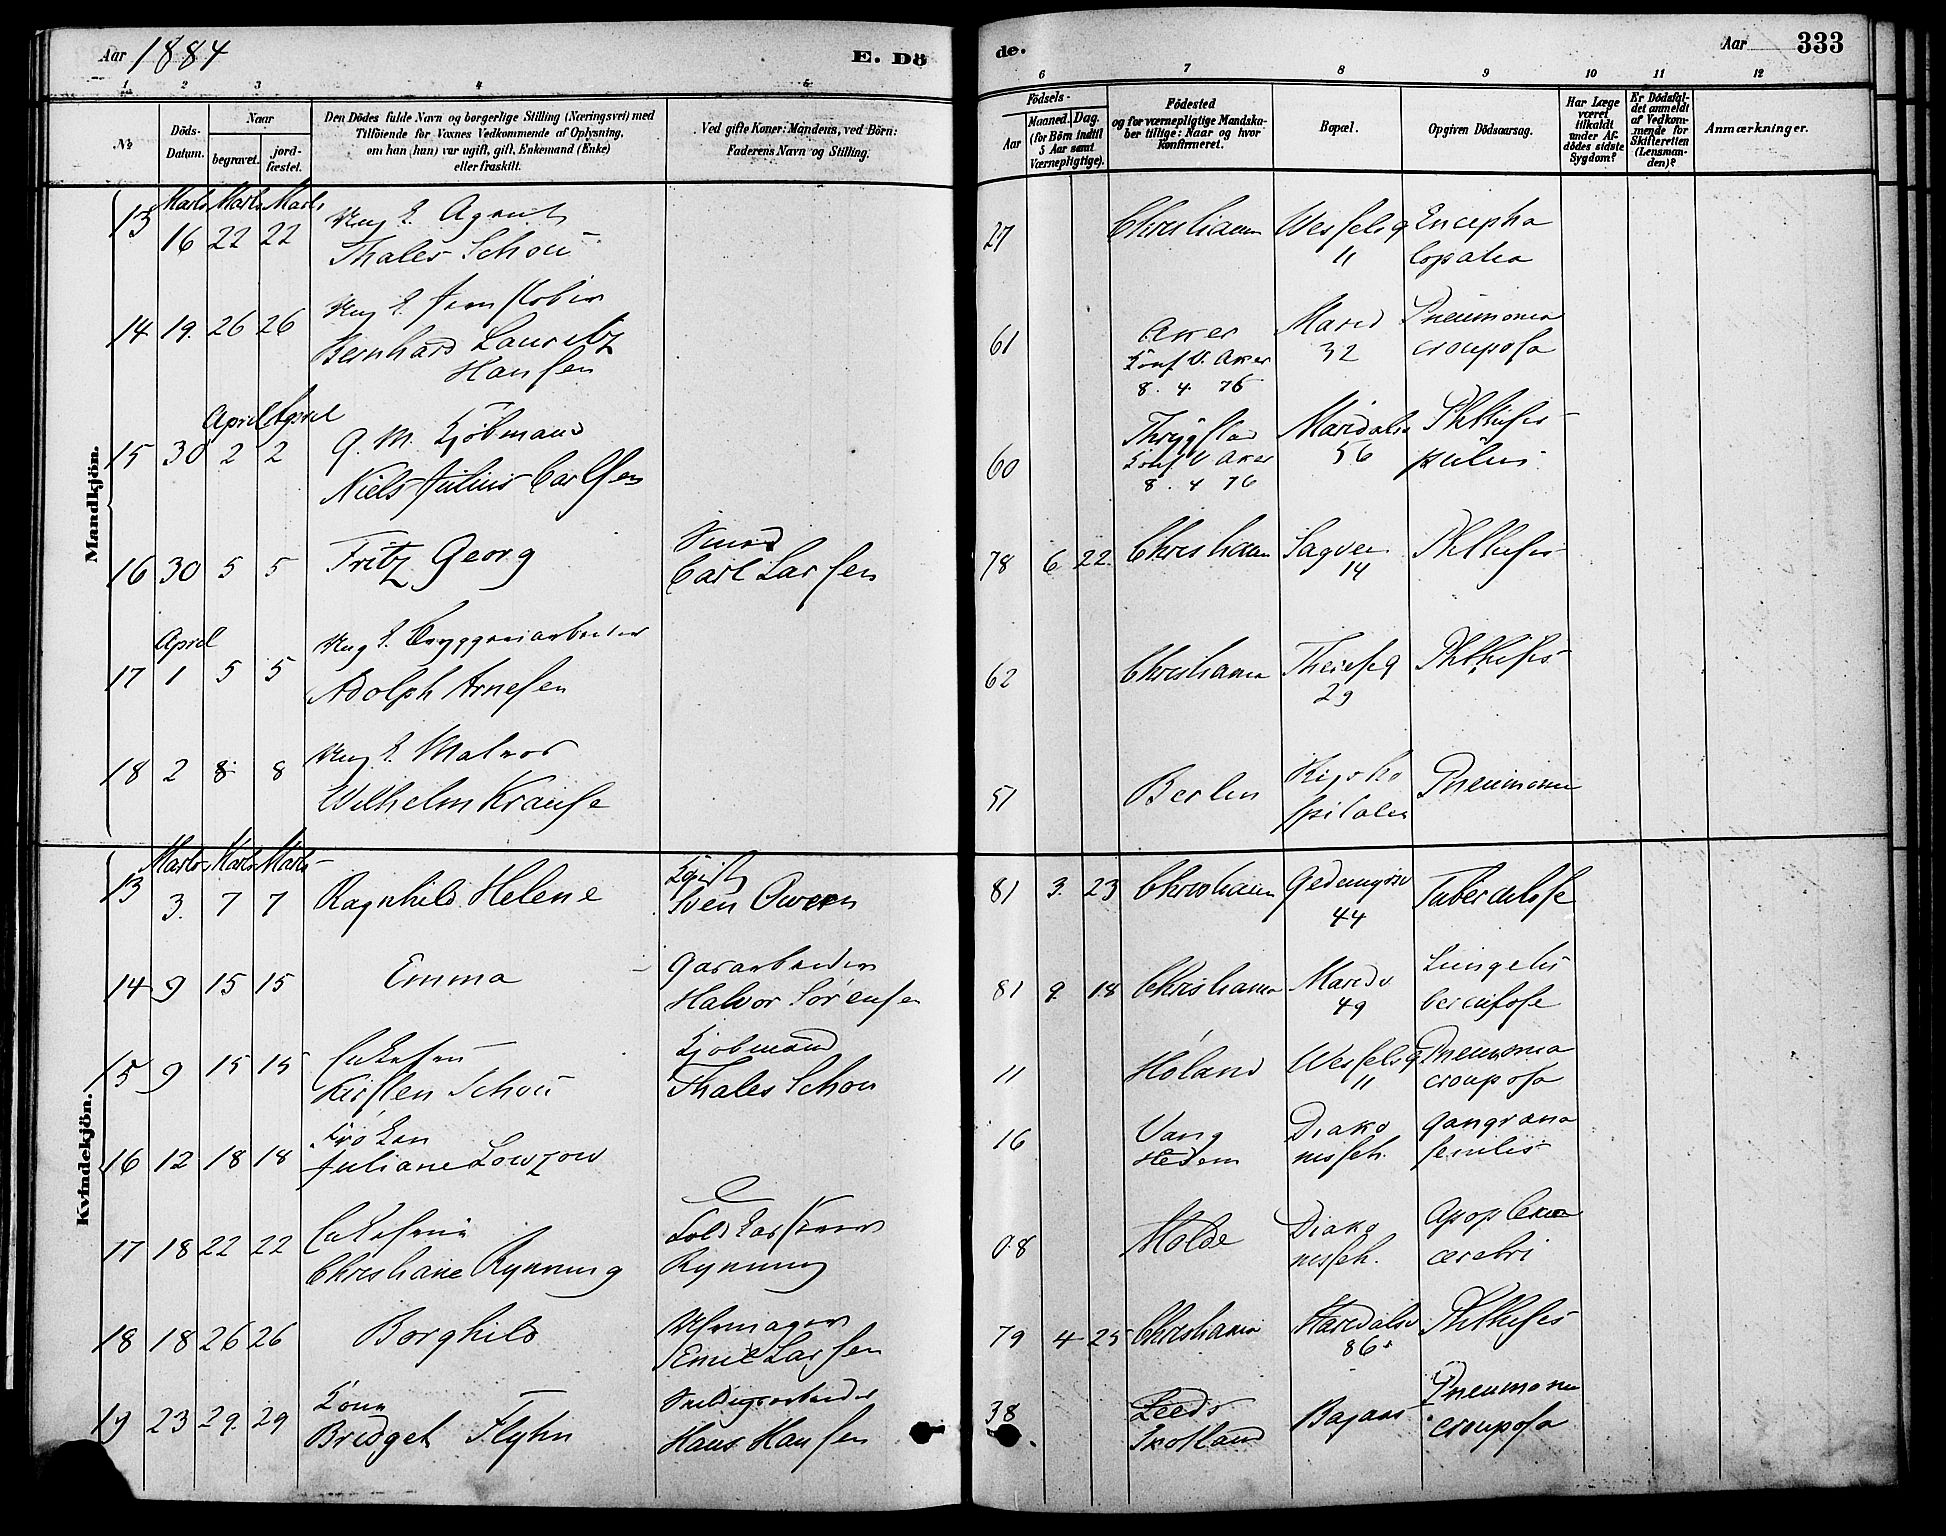 Aar 1884
E. Dö
de.
Aar 333
1 2 3 4 5 6 7 8 9 10 11 12
No
Döds-
Datum.
Naar
begravet.
jord-
fæstet.
Den Dödes fulde Navn og borgerlige Stilling (Næringsvei) med
Tilföiende for Voxnes Vedkommende af Oplysning,
om han (hun) var ugift, gift, Enkemand (Enke)
eller fraskilt.
Ved gifte Koner: Mandens, ved Börn:
Faderens Navn og Stilling.
Födsels-
Aar
Maaned. Dag.
(for Börn indtil
5 Aar samt
Værnepligtige).
Födested
og for værnepligtige Mandska-
ber tillige: Naar og hvor
Konfirmeret.
Bopæl.
Opgiven Dödsaarsag.
Har Læge
været
tilkaldt
under Af-
dödes sidste
Sygdom?
Er Dödsfal-
det anmeldt
af Vedkom-
mende for
Skifteretten
(Lensman-
den)?
Anmærkninger.
Mandkjön.
Marts Marts Marts
13 16 22 22 Ung K. Agent
Thales Schou
27 Christiania Wesselsg
11
Encepha
lopatia
14 19. 26 26 Ung K.
Bernhard Lauritz
Hansen
61 Aker
Konf V. Aker
8. 4. 76
Marid
32
Pneumonia
crouposa
April April
15 30 2 2 G. M. Kjöbmand
Niels Julius Carlsen
60 Thrygstad
Konf V Aker
8. 4 76
Maridalsv
56
Phthisis
pulm.
16 30 5 5 Fritz Georg
Smed
Carl Larsen
78 6 22. Christiania Sagvei
14
Phthisis
April
17 1 5 5 Ung K. Bryggeriarbeider
Adolph Arnesen
62 Christiania Theresesg
29
Phthisis
18 2 8 8 Ung K. Malver
Wilhelm Krause
51 Berlin Rigsho
spitalet
Pneumonia
Kvindekjön.
Marts Marts Marts
13 3. 7 7 Ragnhild Helene
Sven Owren
81 3. 23 Christiania
44
Tuberculose
14 9 15 15 Emma
Gasarbeider
Halvor Sörensen
81 9. 18 Christiania Maridv
49
Lungetu
berculose
15 9 15 15 Enkefru
Kirsten Schou
Kjöbmand
Thales Schou
11 Höland Wesselsg
11
Pneumonia
crouposa
16 12 18 18 Fröken
Juliane Lowzow
16 Vang
Hedem
Diako
nisseh.
Gangræna
senilis
17 18 22 22 Enkefru
Christiane Rynning
Toldkasserer
Rynning
08 Molde Diako
nisseh.
Apoplexia
cerebri
18 18 26 26 Borghild
Uhrmager
Emil Larsen
79 4 25 Christiania Maridalsv
86
Phthisis
19 23 29. 29 Kone
Bridget Flyhn
Hans Hansen
38 Leeds
Skotland
Bagaas
Pneumonia
crouposa